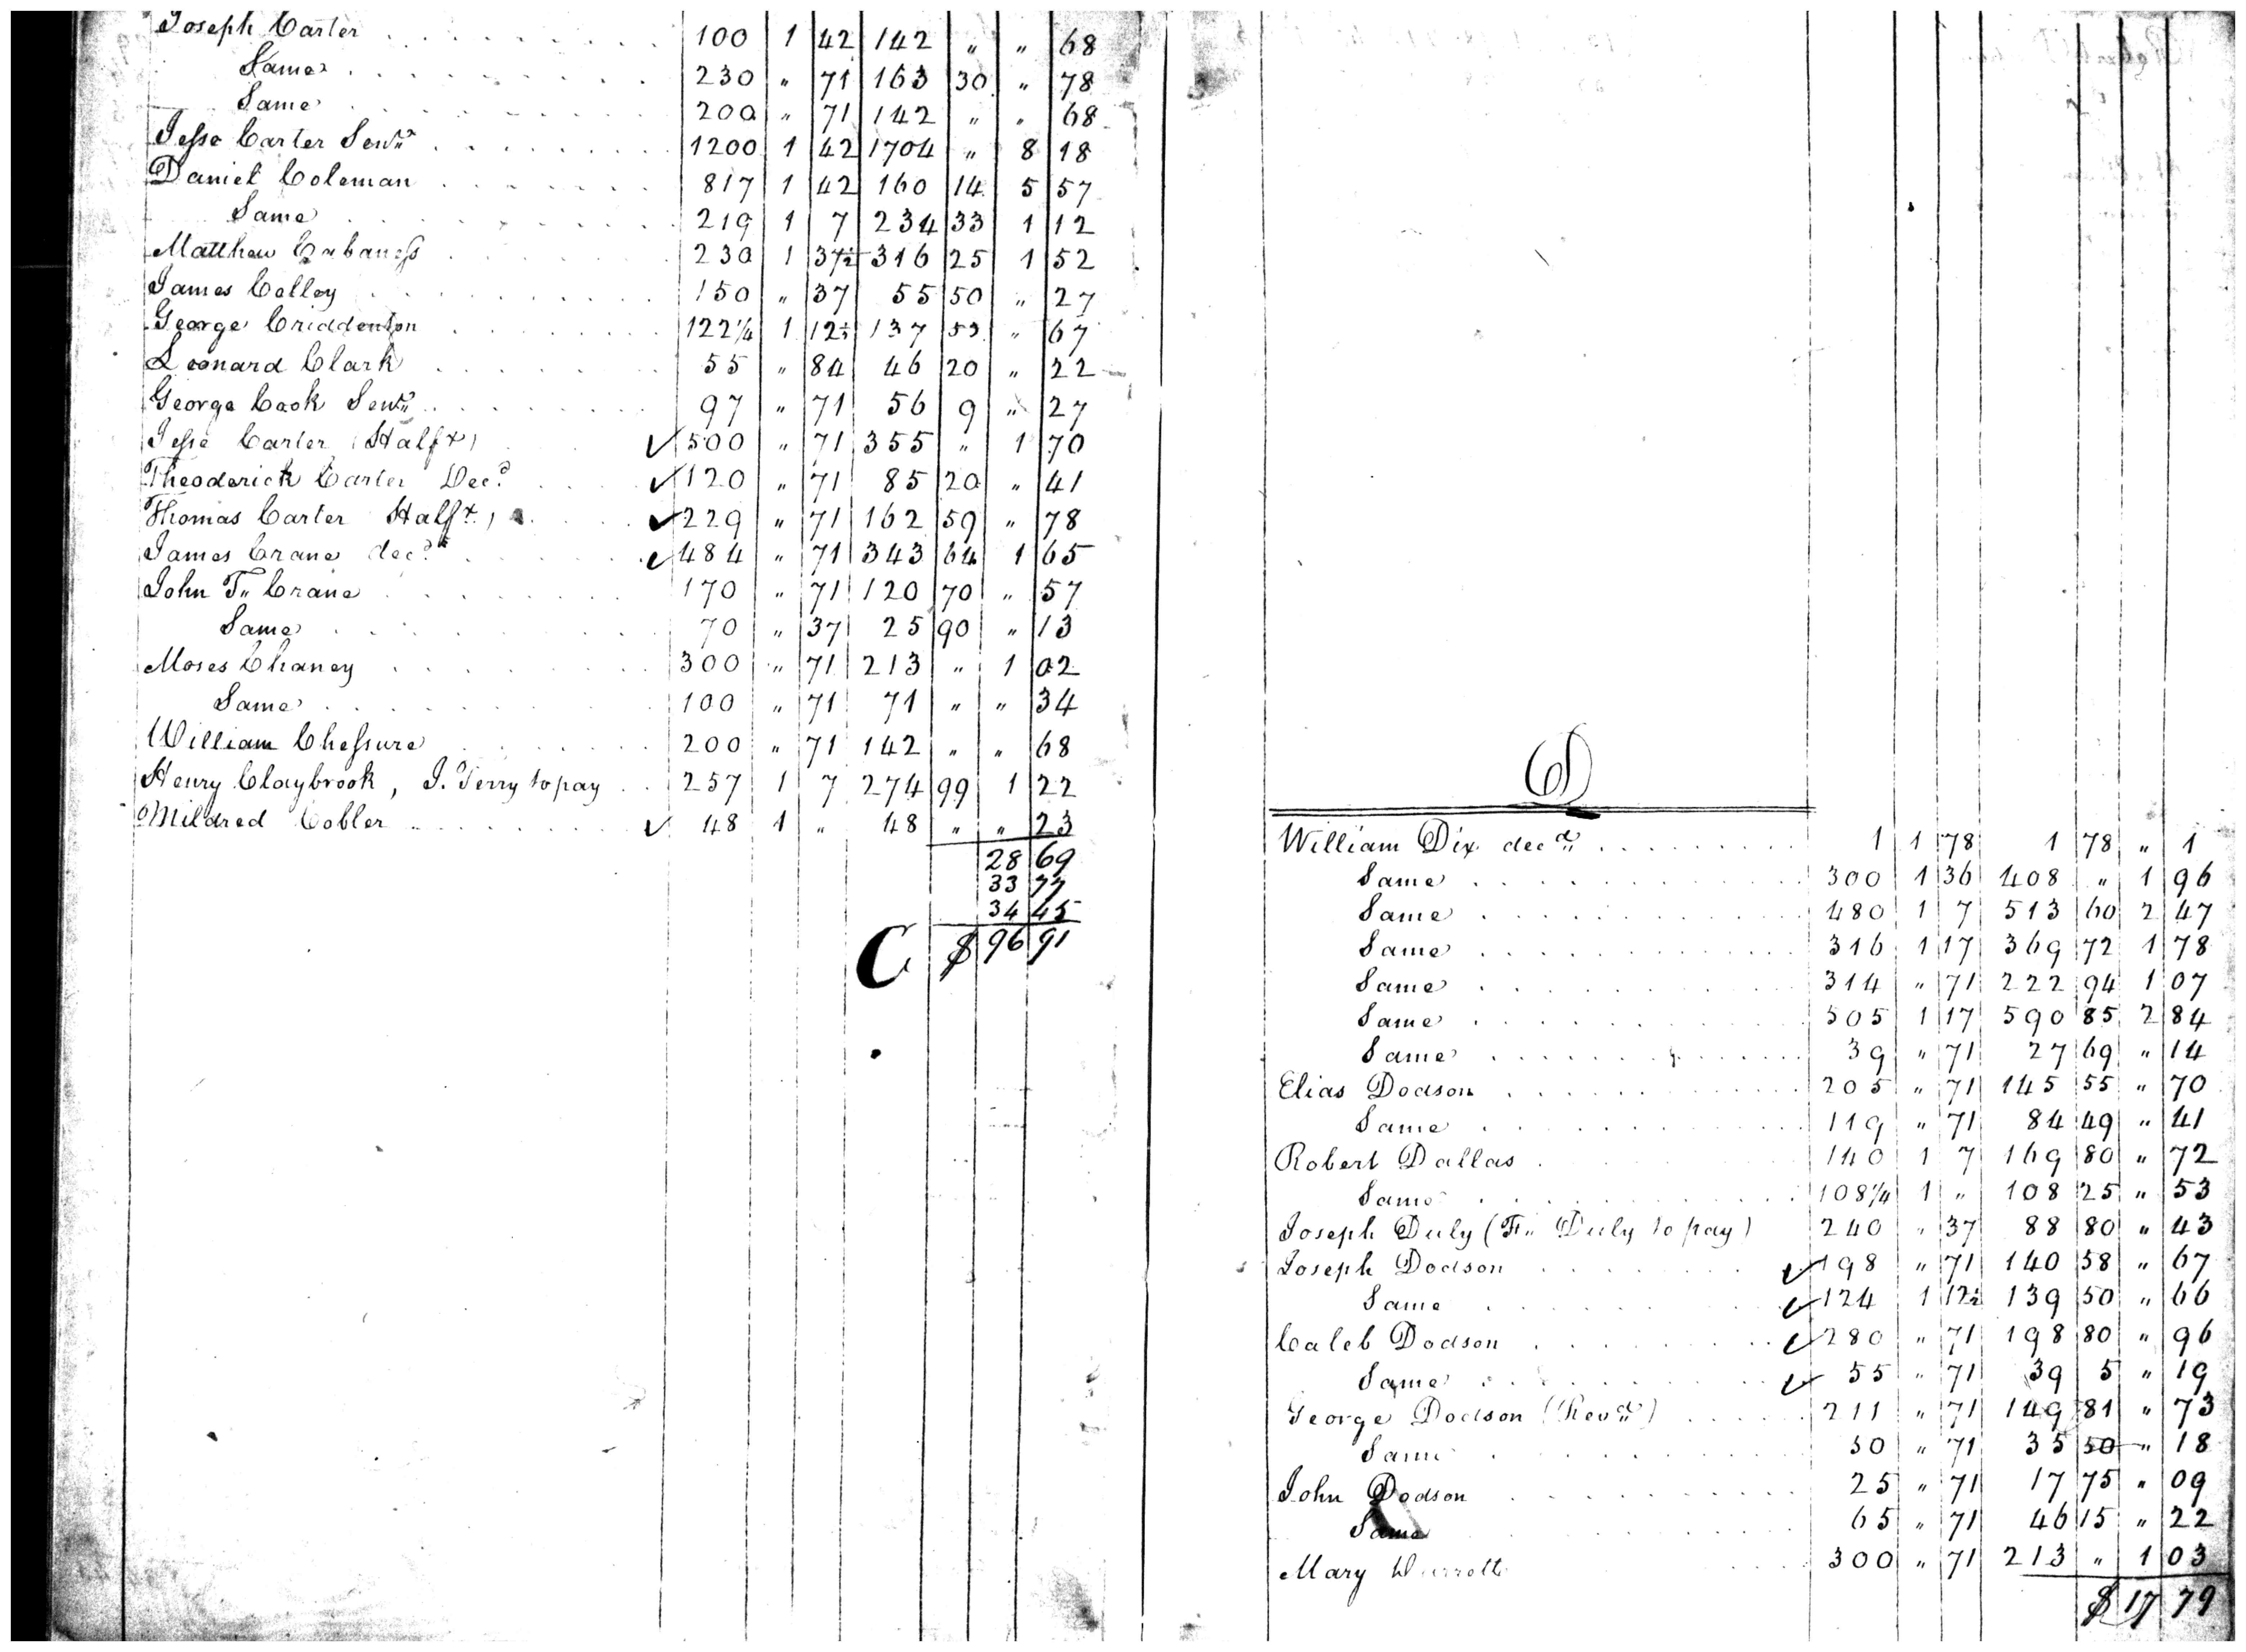 Joseph Carter 100 1 42 142 " " 68
Same 230 " 71 163 30 " 78
Same 200 " 71 142 " " 68
Jesse Carter Senr 1200 1 42 1704 " 8 18
Daniel Coleman 817 1 42 160 14 5 57
Same 219 1 7 234 33 1 12
Matthew 230 1 37½ 316 25 1 52
James Colley 150 " 37 55 50 " 27
George Criddenton 122¼ 1 12½ 137 53 " 67
Leonard Clark 55 " 84 46 20 " 22
George Cook Senr 97 " 71 56 9 " 27
Jesse Carter (Halfx) 500 " 71 355 " 1 70
Theoderick Carter Decd 120 " 71 85 20 " 41
Thomas Carter Halfx) 229 " 71 162 59 " 78
James Crane decd 484 " 71 343 64 1 65
John T. Crane 170 " 71 120 70 " 57
Same 70 " 37 25 90 " 13
Moses Chaney 300 " 71 213 " 1 02
Same 100 " 71 71 " " 34
William Chessure 200 " 71 142 " " 68
Henry Claybrook, J. Terry to pay 257 1 7 274 99 1 22
Mildred Cobler 48 1 " 48 " " 23
28 69
33 77
34 45
C $ 96 91
D
William Dix decd 1 1 78 1 78 " 1
Same 300 1 36 408 " 1 96
Same 480 1 7 513 60 2 47
Same 316 1 17 369 72 1 78
Same 314 " 71 222 94 1 07
Same 505 1 17 590 85 2 84
Same 39 " 71 27 69 " 14
Elias Dodson 205 " 71 145 55 " 70
Same 119 " 71 84 49 " 41
Robert Dallas 140 1 7 169 80 " 72
Same 108¼ 1 " 108 25 " 53
Joseph Duly (F. Duly to pay) 240 " 37 88 80 " 43
Joseph Dodson 198 " 71 140 58 " 67
Same 124 1 12½ 139 50 " 66
Caleb Dodson 280 " 71 198 80 " 96
Same 55 " 71 39 5 " 19
George Dodson (Revd) 211 " 71 149 81 " 73
Same 50 " 71 35 50 " 18
John Dodson 25 " 71 17 75 " 09
Same 65 " 71 46 15 " 22
Mary 300 " 71 213 " 1 03
$ 17 79